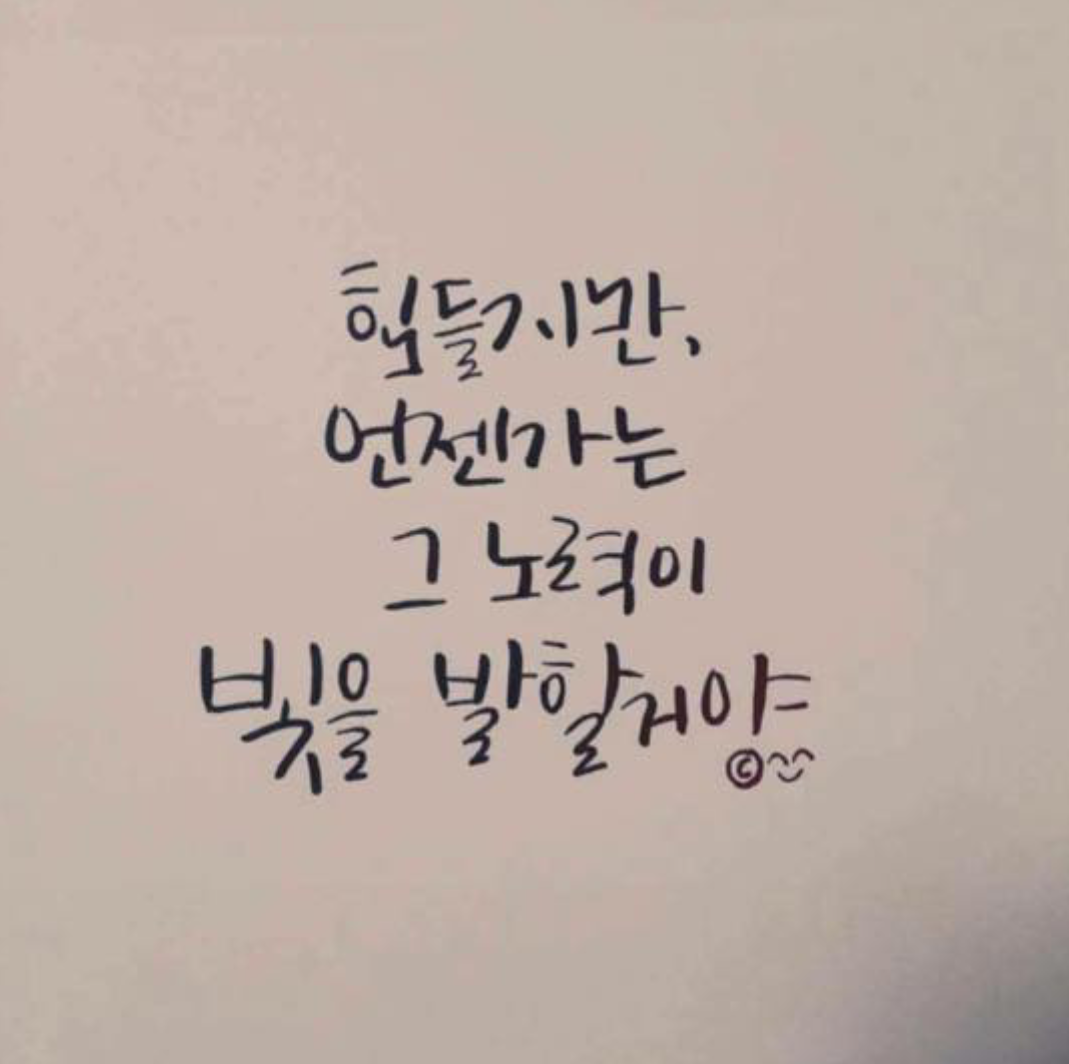 힘들지만,
언젠가는
그 노력이
빛을 발할거야
©